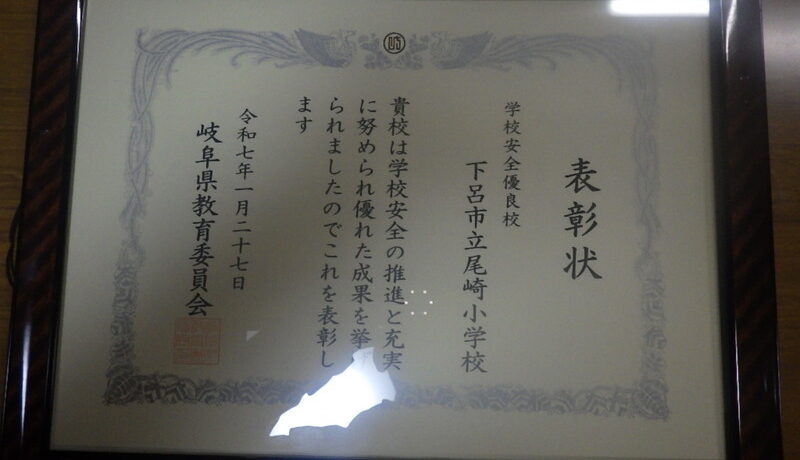 表彰状
学校安全優良校
下呂市立尾崎小学校
貴校は学校安全の推進と充実
に努められ優れた成果を挙
られましたのでこれを表彰し
ます
令和七年一月二十七日
岐阜県教育委員会